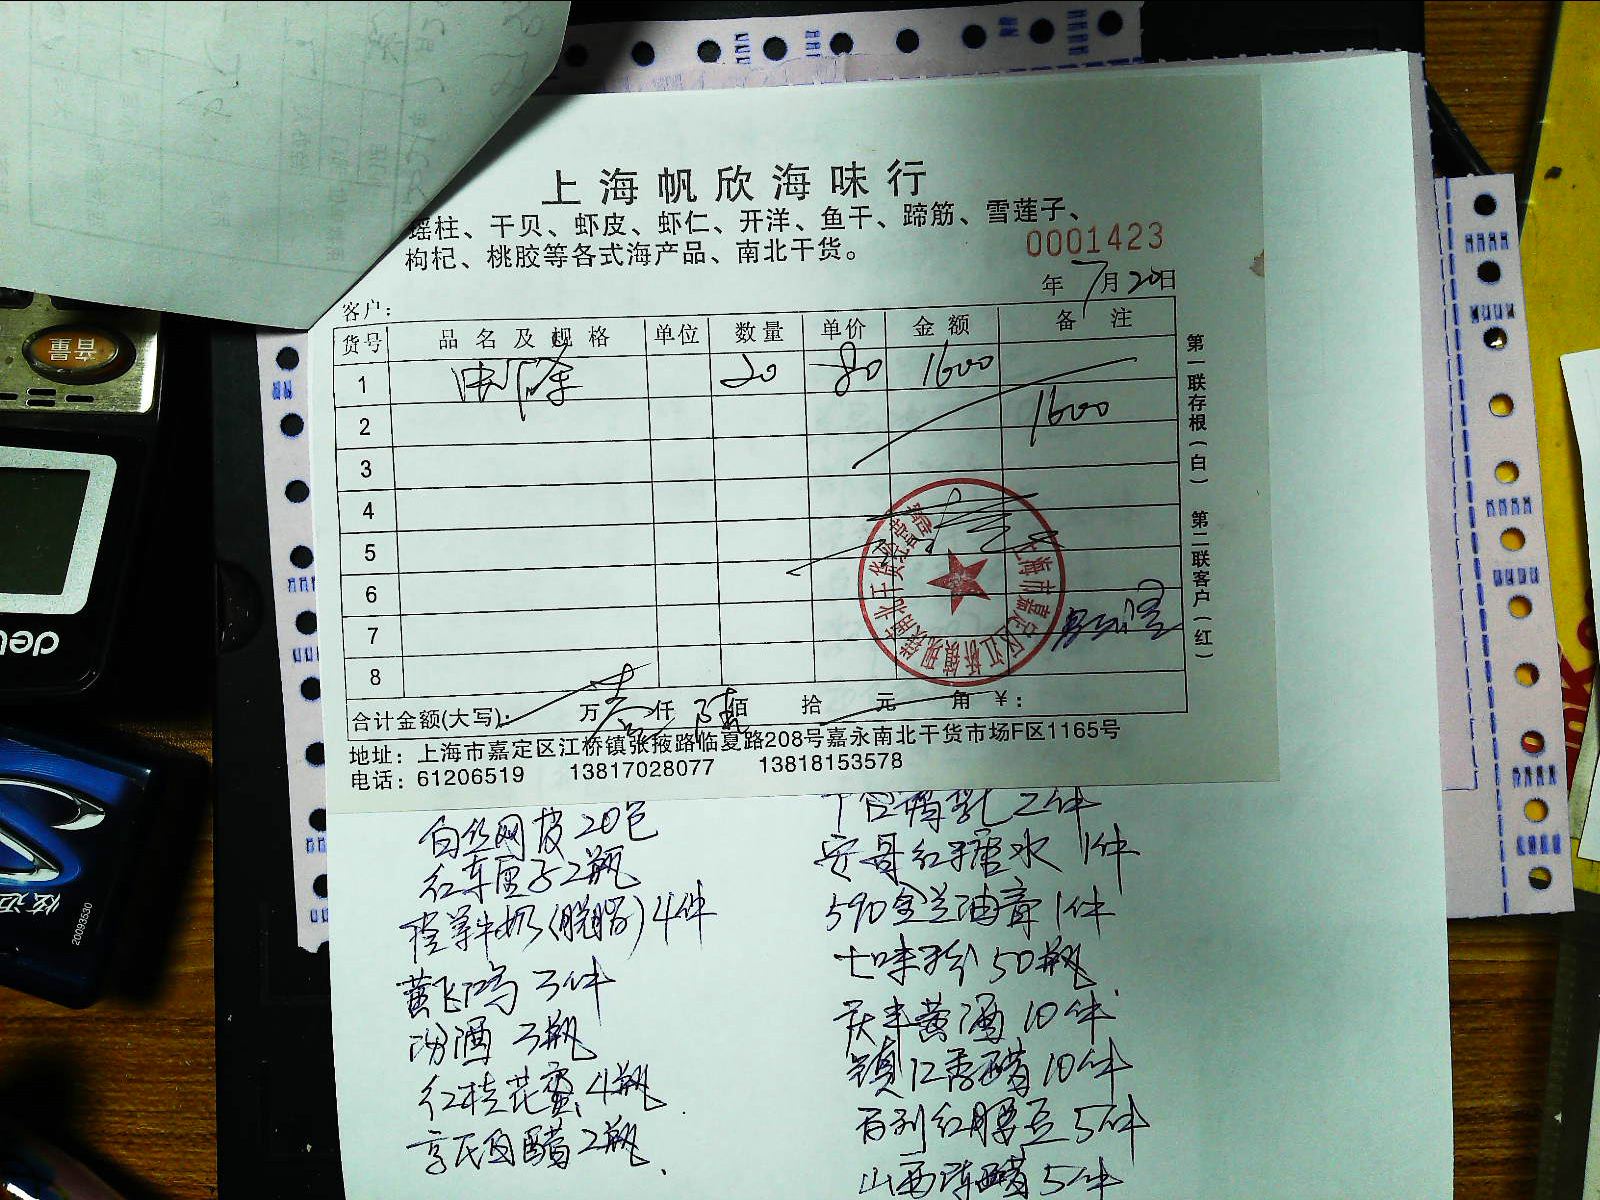 上海帆欣海味行
瑶柱、干贝、虾皮、虾仁、开洋、鱼干、蹄筋、雪莲子、
枸杞、桃胶等各式海产品、南北干货。
0001423
年 7月20日
客户：
货号 品名及规格 单位 数量 单价 金额 备注
1 20 80 1600
2 1600
3
4
5
6
7
8
合计金额(大写): 万 壹仟 陆佰 拾 元 角 ¥：
地址：上海市嘉定区江桥镇张掖路临夏路208号嘉永南北干货市场F区1165号
电话：61206519 13817028077 13818153578
第一联存根(白) 第二联客户(红)
上海市嘉定区江桥镇
白丝网皮20包
红车厘子2瓶
牛奶(脱脂)4件
黄飞鸿3件
汾酒3瓶
红桂花蜜4瓶
白醋2瓶
腐乳2件
安母红糖水1件
590金兰油膏1件
七味粉50瓶
黄酒10件
镇江香醋10件
百利红腰豆5件
山西陈醋5件
音量
deli
炫迈
20093530